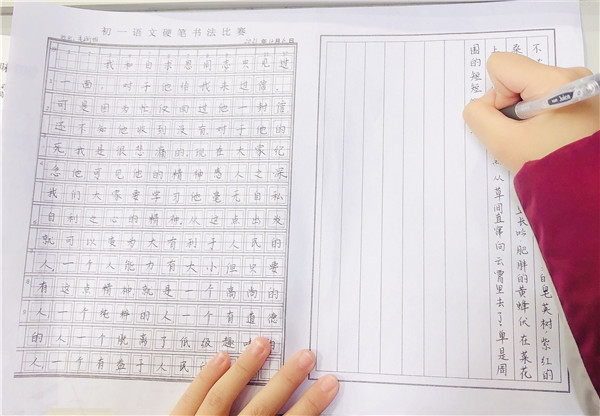 初一语文硬笔书法比赛
我和白求恩同志只见过
一面。对于他给我来过信,
可是因为忙仅回过他一封信
还不知他收到没有。对于他的
死,我是很悲痛的,现在大家纪
念他可见他的精神感人之深
我们大家要学习他毫无自私
自利之心的精神,从这点出发
就可以变为大有利于人民的
人,一个人能力有大小但只要
有这点精神就是一个高尚的
人一个纯粹的人一个有道德
的人一个脱离了低级趣味的
人,一个有益于人民
不 的皂荚树,紫红的
桑 长吟,肥胖的黄蜂伏在菜花
上 从草间直窜向云霄里去了!单是周
围的短短